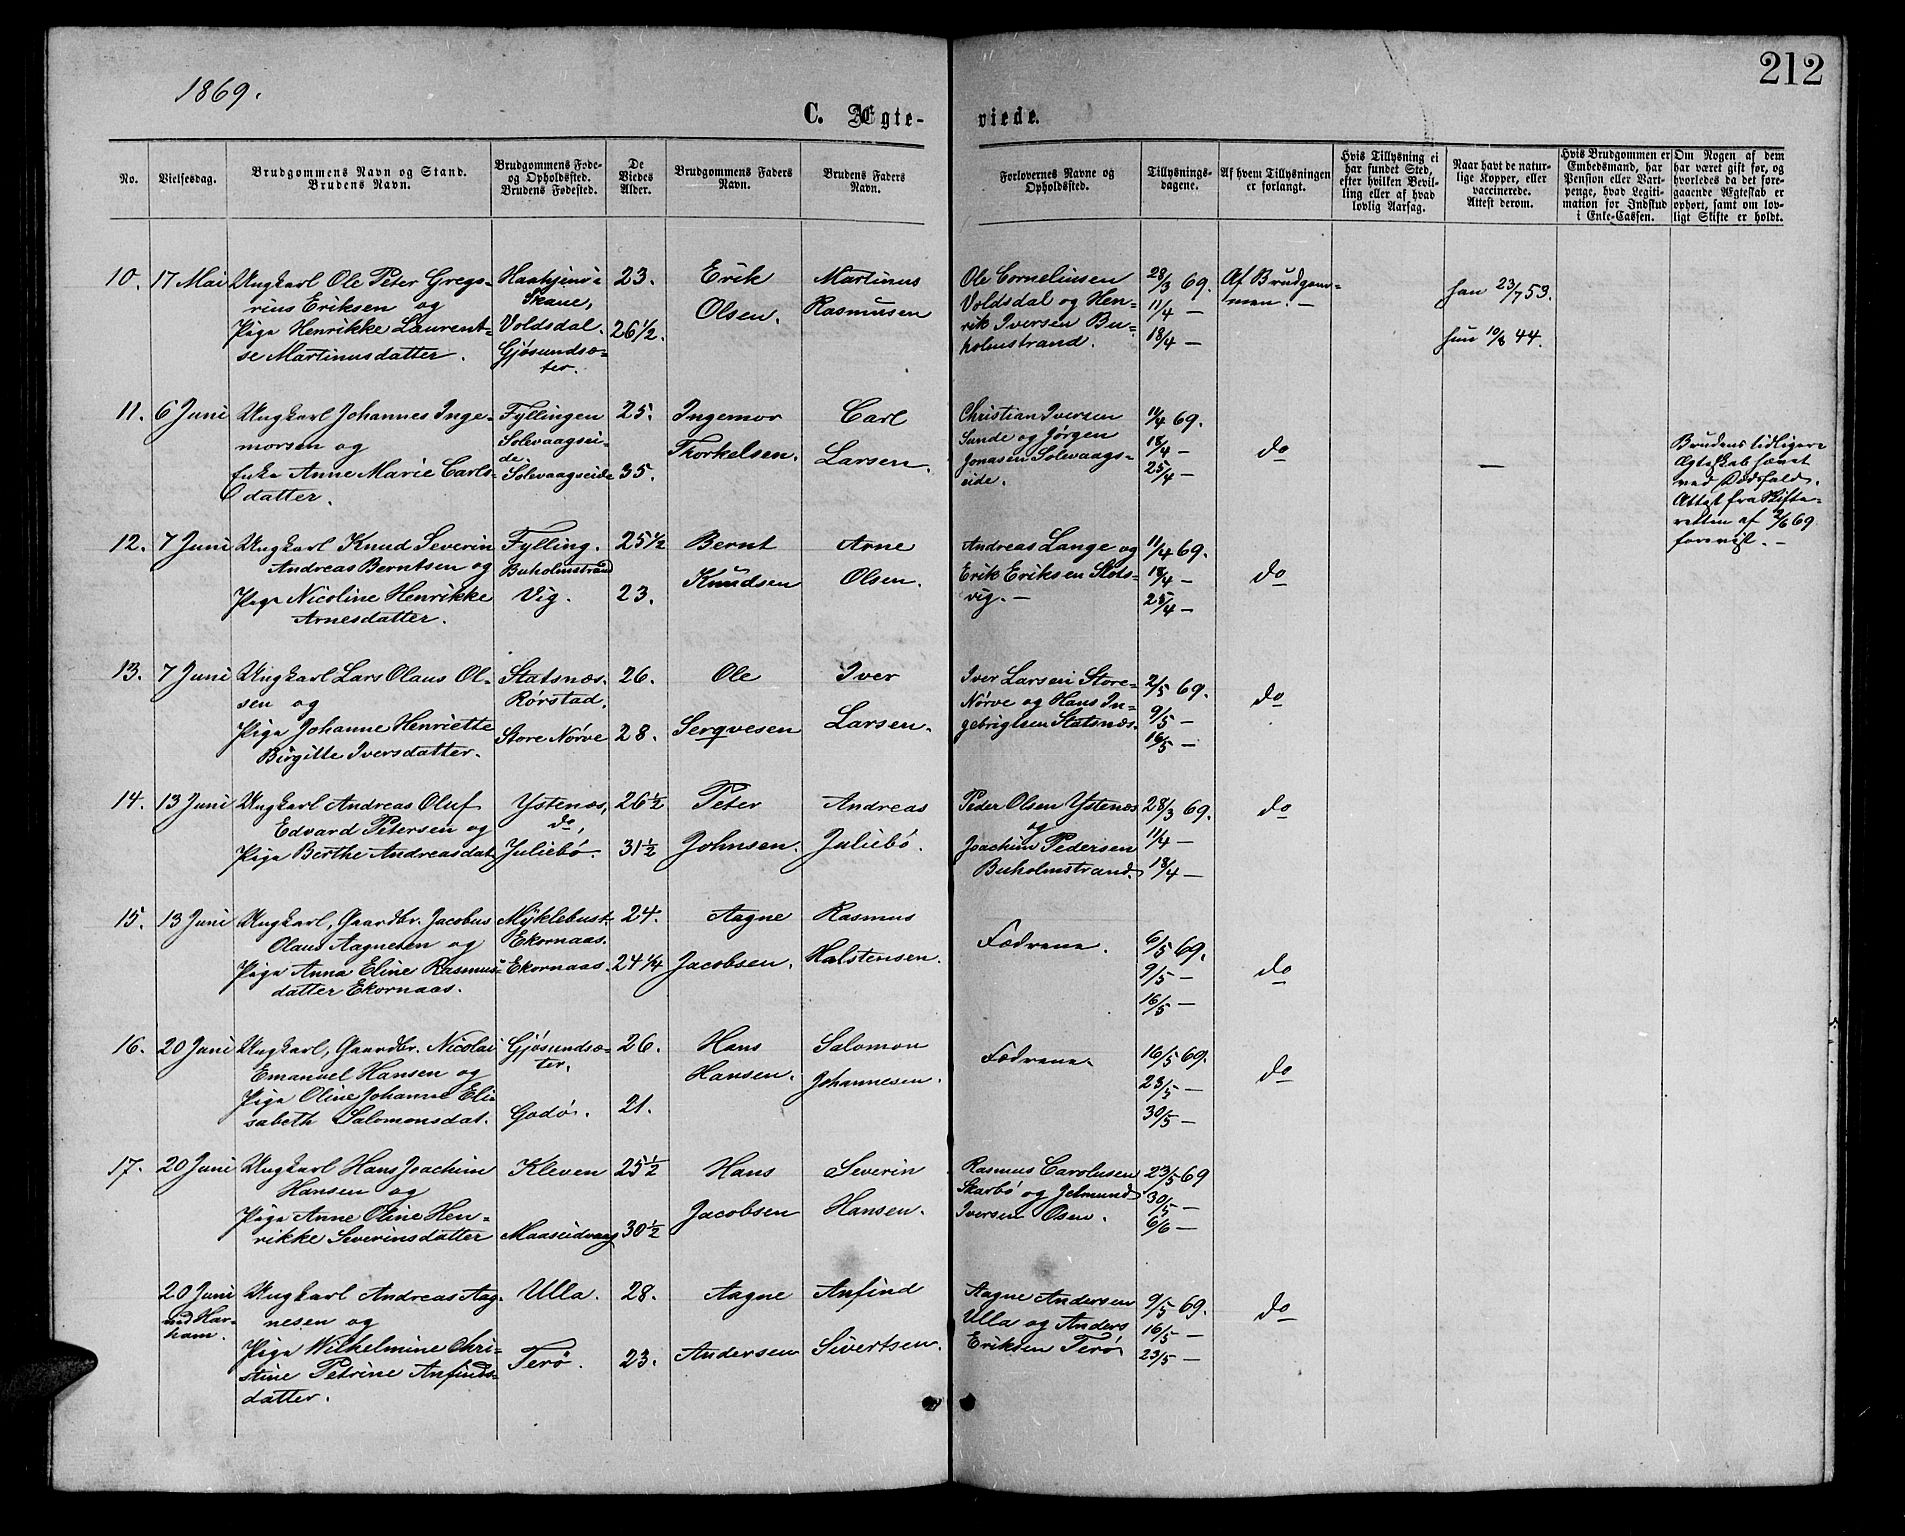 212
1869.
C. Ægte-
viede.
No.
Vielsesdag.
Brudgommens Navn og Stand.
Brudens Navn.
Brudgommens Føde-
og Opholdssted.
Brudens Fødested.
De
Viedes
Alder.
Brudgommens Faders
Navn.
Brudens Faders
Navn.
Forlovernes Navne og
Opholdssted.
Tillysnings-
dagene.
Af hvem Tillysningen
er forlangt.
Hvis Tillysning ei
har fundet Sted,
efter hvilken Bevil-
ling eller af hvad
lovlig Aarsag.
Naar havt de natur-
lige Kopper, eller
vaccinerede.
Attest derom.
Hvis Brudgommen er
Embedsmand, har
Pension eller Vart-
penge, hvad Legiti-
mation for Indskud
i Enke-Cassen.
Om Nogen af dem
har været gift før, og
hvorledes da det fore-
gaaende Ægteskab er
ophørt, samt om lov-
ligt Skifte er holdt.
10.
17 Mai
Ungkarl Ole Peter Gregs-
rius Eriksen og
Pige Henrikke Laurent-
se Martinusdatter.
Skane,
Voldsdal.
Gjøsundsæ-
ter.
23.
26 1/2.
Erik
Olsen.
Martinus
Rasmusen
Ole Corneliusen
Voldsdal og Hen-
rik Iversen Bu-
holmstrand.
28/3 69.
11/4 —
18/4 —
Af Brudgom-
men. —
han 23/7 53.
hun 10/8 44.
11.
6 Juni
Ungkarl Johannes Inge-
morsen og
Enke Anne Marie Carls-
datter.
Fyllingen
Solevaagsei-
de
Solevaagseide
25.
35.
Ingemor
Thorkelsen.
Carl
Larsen.
Christian Iversen
Sunde og Jørgen
Jonasen Solevaags-
eide.
11/4 69.
18/4 —
25/4 —
do
—
Brudens tidligere
Ægteskab hævet
ved Dødsfald.
Attest fra Skifte-
retten af 2/6 69
forevist. —
12.
7 Juni
Ungkarl Knud Severin
Andreas Berntsen og
Pige Nicoline Henrikke
Arnesdatter.
Fylling.
Buholmstrand
Vig.
25 1/2
23.
Bernt
Knudsen
Arne
Olsen.
Andreas Lange og
Erik Eriksen Slots-
vig. —
11/4 69.
18/4 —
25/4 —
do
13.
7 Juni
Ungkarl Lars Olaus Ol-
sen og
Pige Johanne Henriette
Birgitte Iversdatter.
Statsnæs.
Rørstad.
Store Nørve
26.
28.
Ole
Serqvesen
Iver
Larsen.
Iver Larsen Store-
Nørve og Hans In-
gebrigtsen Statsnæs.
2/5 69.
9/5 —
16/5 —
do
14.
13 Juni
Ungkarl Andreas Oluf
Edvard Petersen og
Pige Berthe Andreasdat.
Ystenæs,
do,
Juliebø.
26 1/2
31 1/2
Peter
Johnsen.
Andreas
Juliebø.
Peder Olsen Ystenæs
og
Joachim Pedersen
Buholmstrand.
28/3 69.
11/4 —
18/4 —
do
15.
13 Juni
Ungkarl, Gaardbr. Jacobus
Olaus Aagnesen og
Pige Anna Eline Rasmus-
datter Ekornaas.
Myklebust.
Ekornaas.
Ekornaas.
24.
24 1/4
Aagne
Jacobsen.
Rasmus
Halstensen.
Fædrene.
6/5 69.
9/5 —
16/5 —
do
16.
20 Juni
Ungkarl, Gaardbr. Nicolai
Emanuel Hansen og
Pige Oline Johanne Eli-
sabeth Salomonsdat.
Gjøsundsæ-
ter.
Godø.
26.
21.
Hans
Hansen.
Salomon
Johannesen.
Fædrene.
16/5 69.
23/5 —
30/5 —
do
17.
20 Juni
Ungkarl Hans Joachim
Hansen og
Pige Anne Oline Hen-
rikke Severinsdatter
Kleven
Maaseidvaag
25 1/2
30 1/2
Hans
Jacobsen
Severin
Hansen.
Rasmus Carolusen
Skarbø og Jelmund
Iversen Osen.
23/5 69
30/5 —
6/6 —
20 Juni
ved Har-
ham.
Ungkarl Andreas Aag-
nesen og
Pige Wilhelmine Chri-
stine Petrine Anfinds-
datter.
Ulla.
Terø.
28.
23.
Aagne
Andersen
Anfind
Sivertsen.
Aagne Andersen
Ulla og Anders
Eriksen Terø
9/5 69.
16/5 —
23/5 —
do